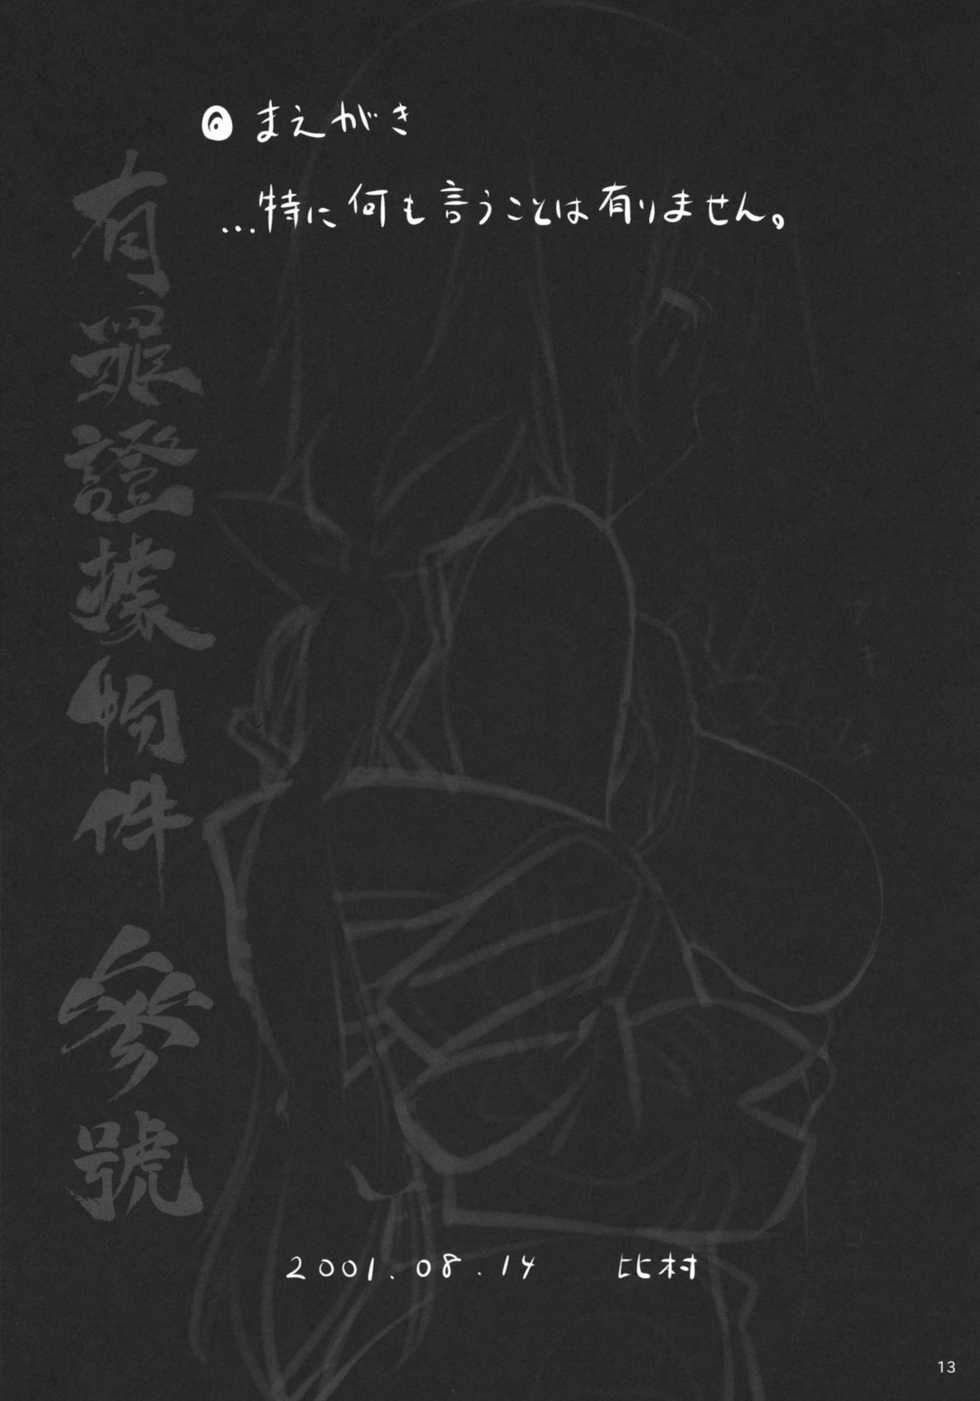 ◎ まえがき
…特に何も言うことは有りません。
有罪證據物件 參號
2001.08.14 比村
13